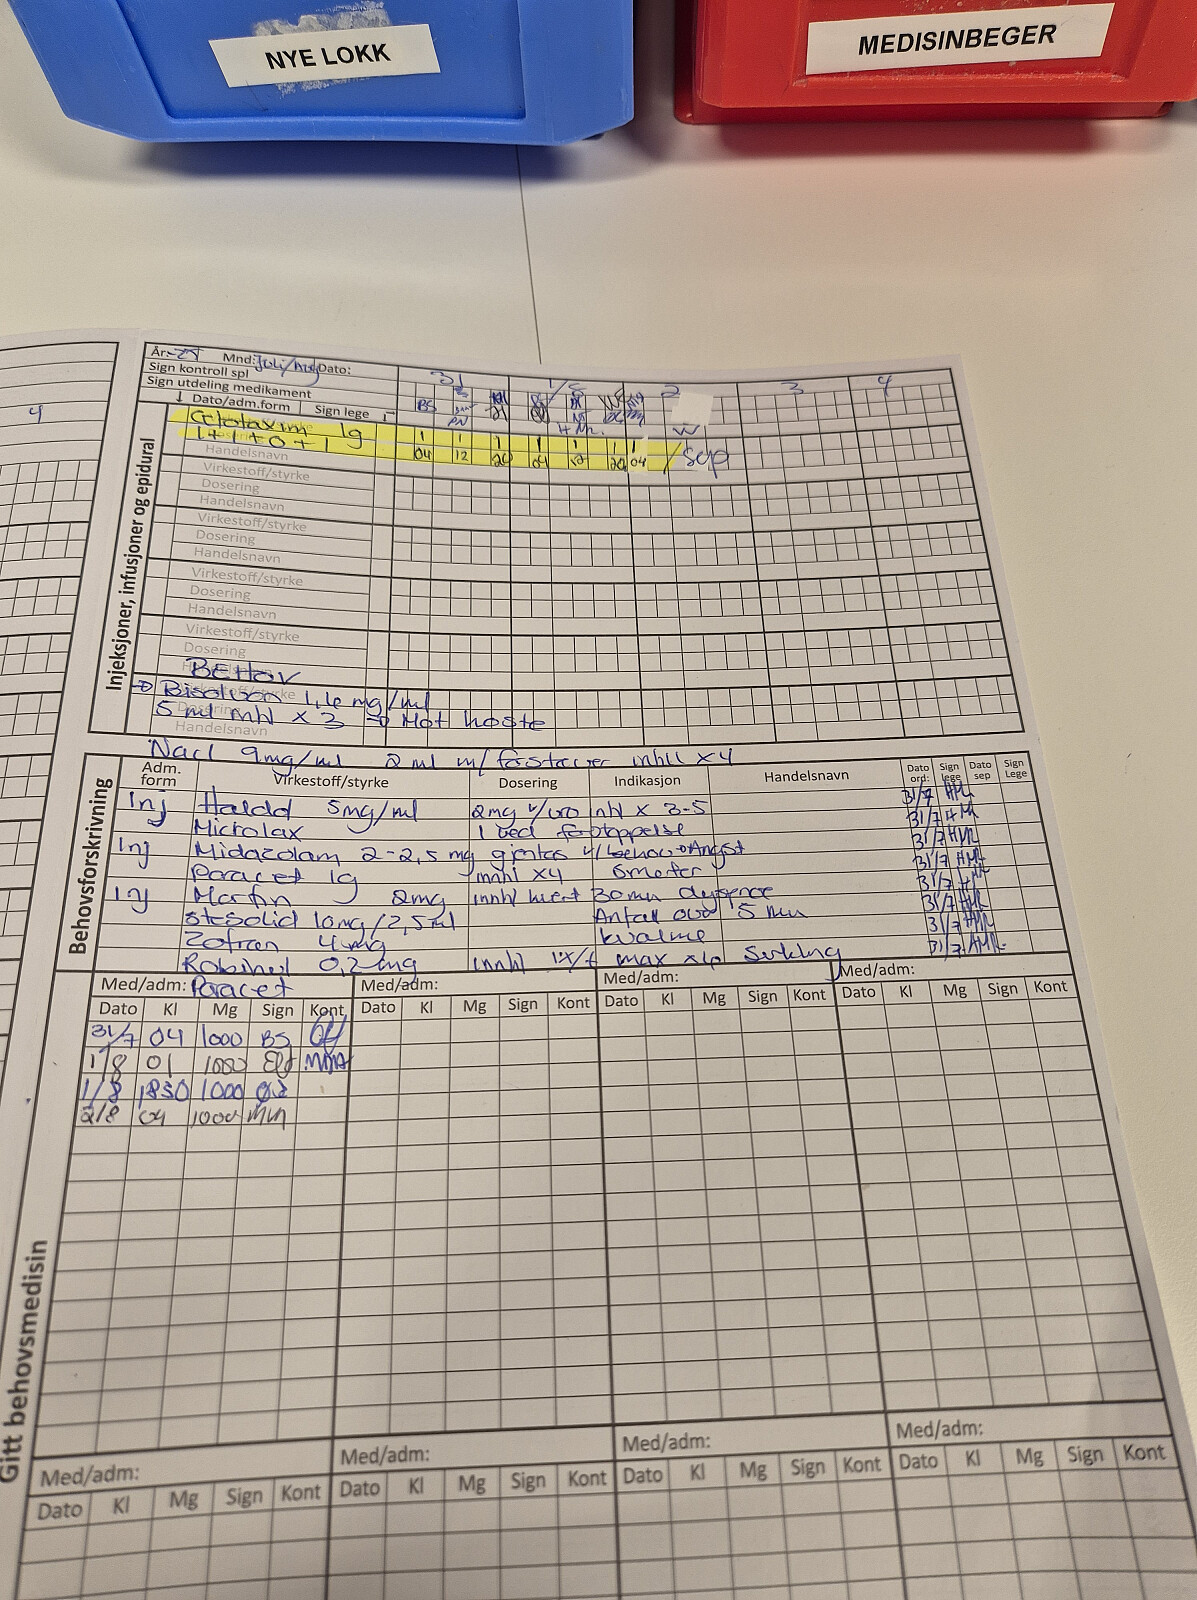 NYE LOKK
MEDISINBEGER
4
År: Mnd: Juli/Aug Dato: 31 1/8 2 3 4
Sign kontroll spl
Sign utdeling medikament
↓ Dato/adm.form Sign lege
BS
1g
1+1+0+1
1 1 1 1 1 1 1
04 12 20 04 12 20 04 /sep
Handelsnavn
Injeksjoner, infusjoner og epidural
Virkestoff/styrke
Dosering
Handelsnavn
Virkestoff/styrke
Dosering
Handelsnavn
Virkestoff/styrke
Dosering
Handelsnavn
Virkestoff/styrke
Dosering
BEHOV
→ Bisolvon mg/ml
5 ml inhl x 3 → Mot hoste
Handelsnavn
Nacl 9mg/ml 2 ml m/forstøver inhl x4
Behovsforskrivning
Adm. form Virkestoff/styrke Dosering Indikasjon Handelsnavn Dato ord: Sign lege Dato sep Sign Lege
Inj Haldol 5mg/ml 2mg v/uro inhl x 3-5 31/7
Microlax 1 ved forstoppelse 31/7
Inj Midazolam 2-2,5 mg gjentas v/behov Angst 31/7
Paracet 1g inntil x4 Smerter 31/7
Inj Morfin 2mg inntil hvert 30 min dyspnoe 31/7
Stesolid 10mg/2,5ml Anfall over 5 min 31/7
Zofran 4mg Kvalme 31/7
Robinul 0,2mg inntil max x Surkling 31/7
Gitt behovsmedisin
Med/adm: Paracet Med/adm: Med/adm: Med/adm:
Dato Kl Mg Sign Kont Dato Kl Mg Sign Kont Dato Kl Mg Sign Kont Dato Kl Mg Sign Kont
31/7 04 1000 BS
1/8 01 1000
1/8 1830 1000
2/8 04 1000 MM
Med/adm: Med/adm: Med/adm: Med/adm:
Dato Kl Mg Sign Kont Dato Kl Mg Sign Kont Dato Kl Mg Sign Kont Dato Kl Mg Sign Kont